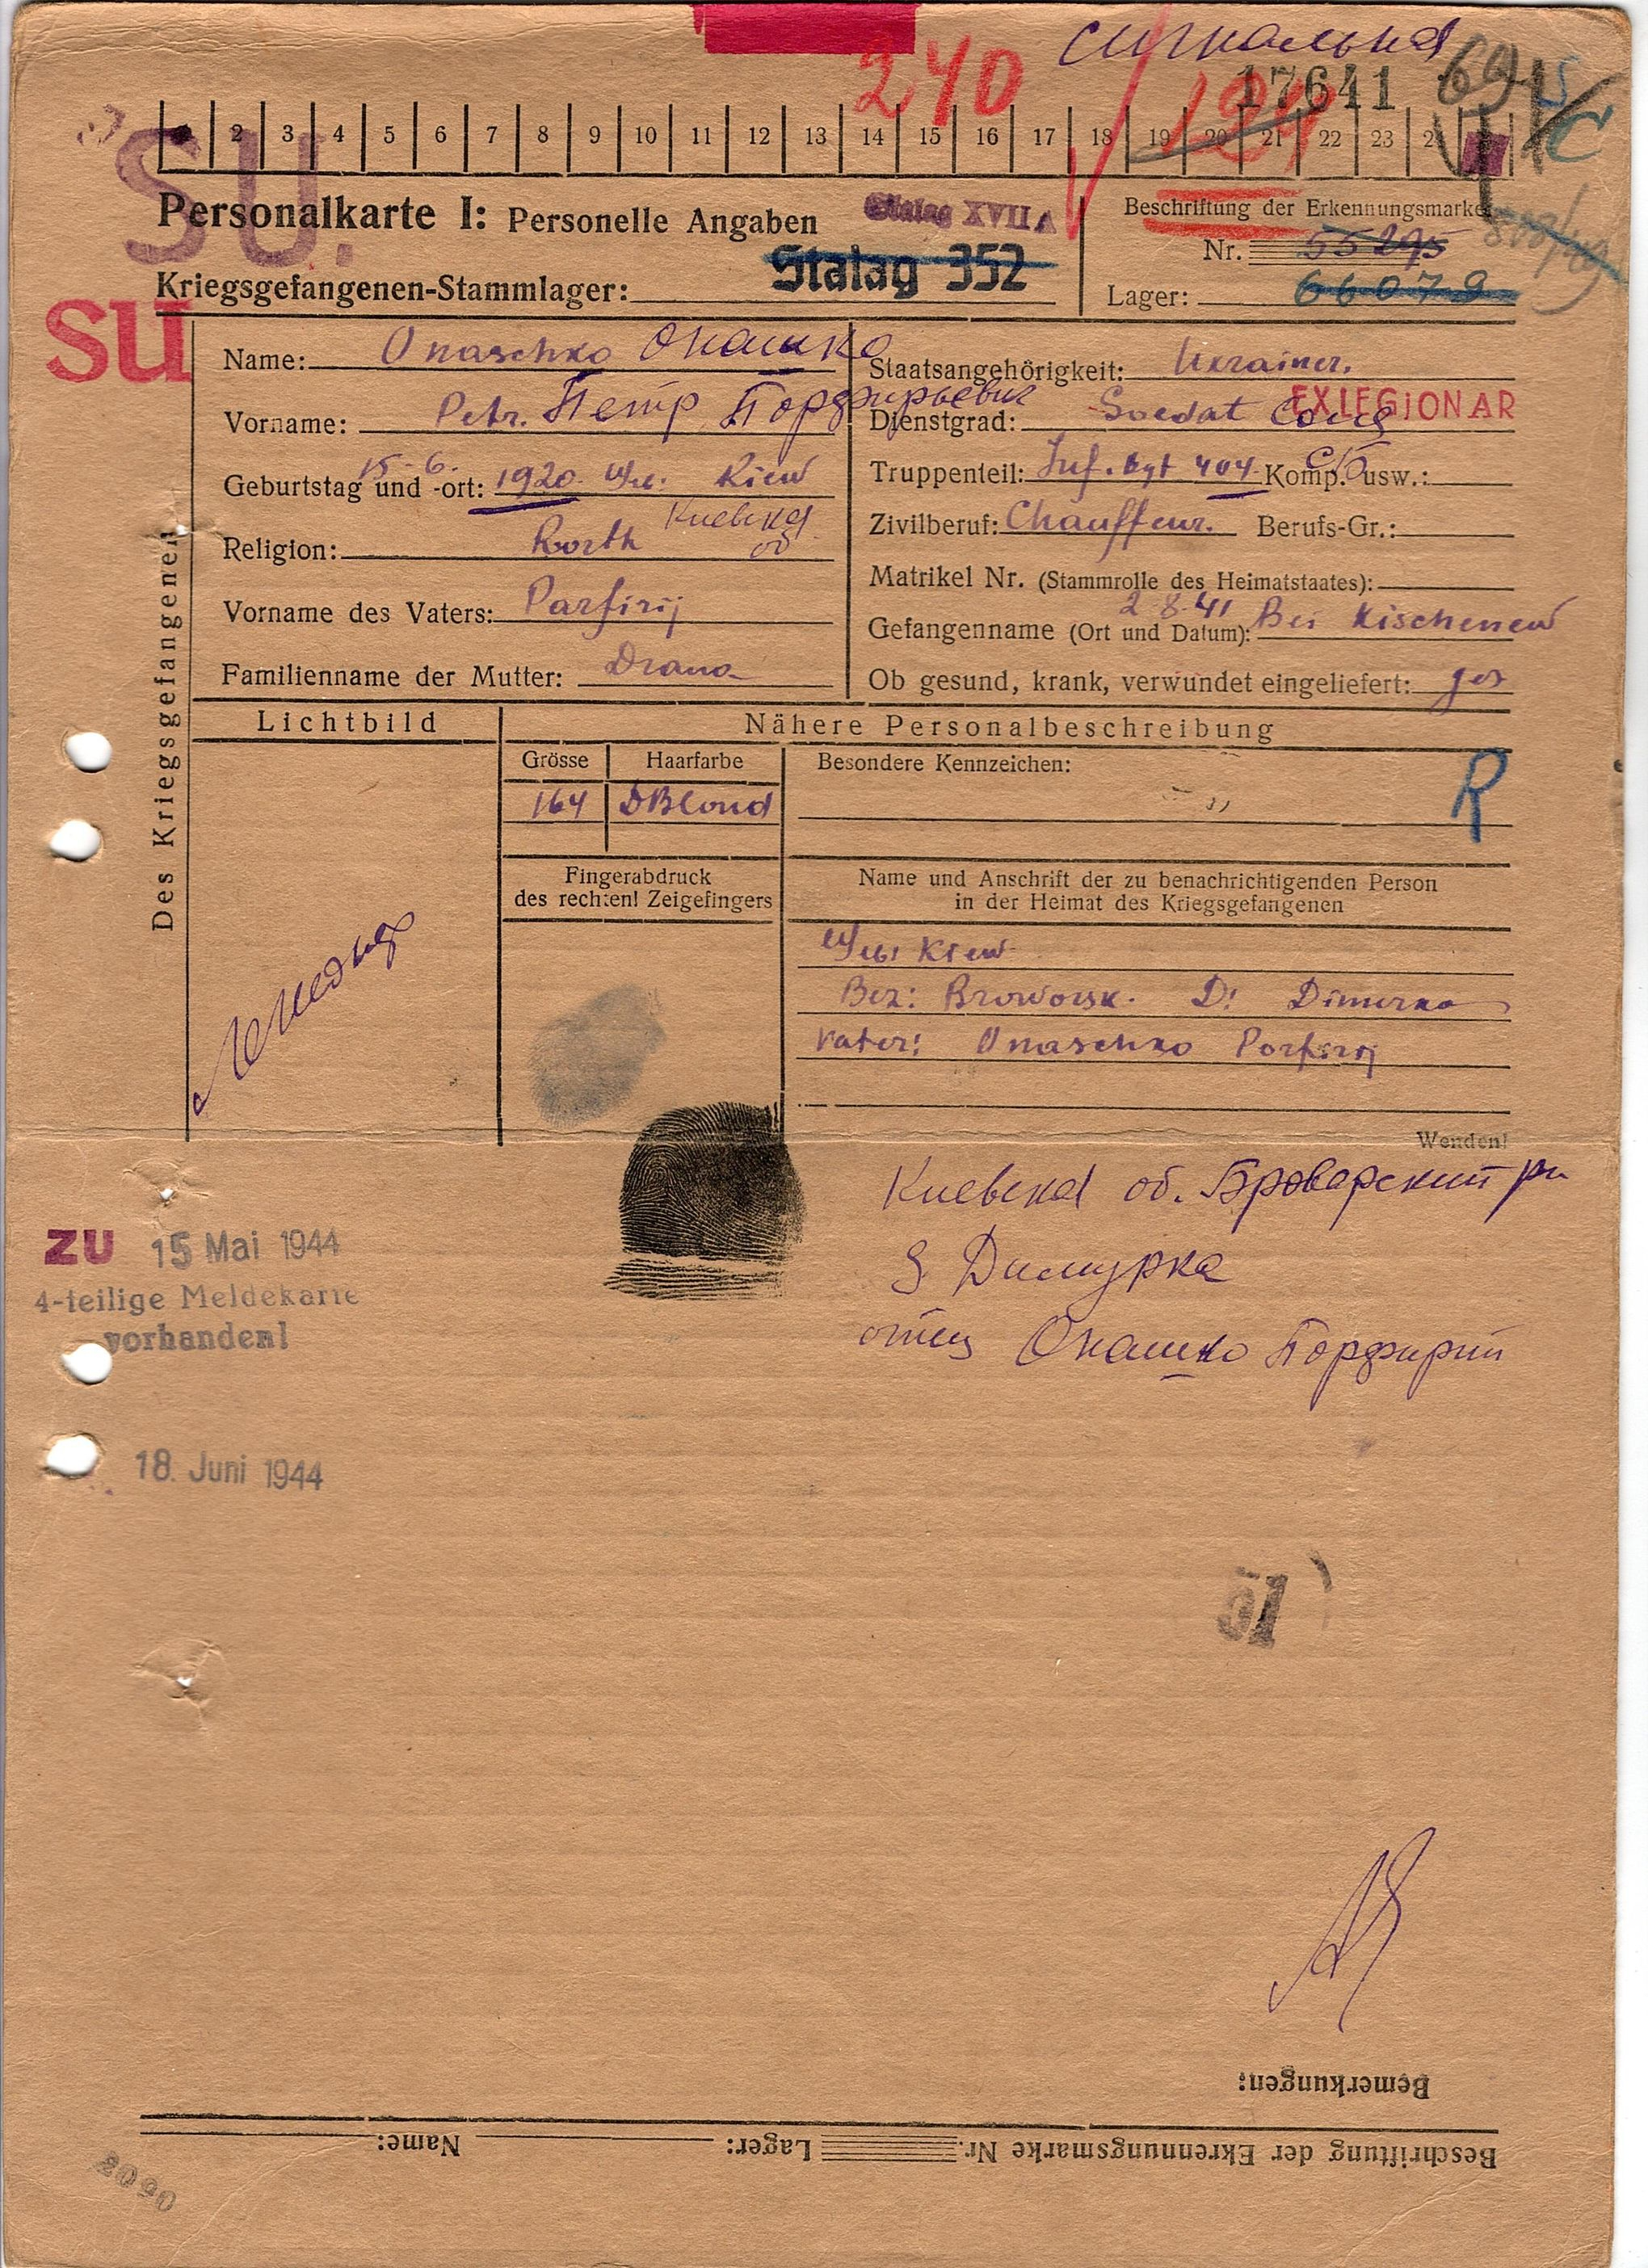 сигнальная
240
17641
1 2 3 4 5 6 7 8 9 10 11 12 13 14 15 16 17 18 19 20 21 22 23
SU.
Personalkarte I: Personelle Angaben
Stalag XVII A
Beschriftung der Erkennungsmarke
Nr. 55295
Stalag 352
Kriegsgefangenen-Stammlager:
Lager: 66079
SU
Name: Onaschko Онашко
Staatsangehörigkeit: Ukrainer.
Vorname: Petr. Петр Порфирьевич
Dienstgrad: Soldat
EXLEGIONAR
Geburtstag und -ort: 15.6. 1920 Kiew
Truppenteil: Inf. 404 Komp. usw.:
Киевская об
Zivilberuf: Chauffeur. Berufs-Gr.:
Religion:
Matrikel Nr. (Stammrolle des Heimatstaates):
Vorname des Vaters: Parfirij
Gefangenname (Ort und Datum): 2.8.41 Bei Kischenew
Familienname der Mutter:
Ob gesund, krank, verwundet eingeliefert: ges
Des Kriegsgefangenen
Lichtbild
Nähere Personalbeschreibung
Grösse
Haarfarbe
Besondere Kennzeichen:
164
DBlond
R
Fingerabdruck
des rechten! Zeigefingers
Name und Anschrift der zu benachrichtigenden Person
in der Heimat des Kriegsgefangenen
Kiew
Bez: Browarsk. D: Dimurka
Vater: Onaschko Porfirij
Wenden!
Киевская об. Броварский рн
Димурка
отец Онашко Порфирий
ZU 15 Mai 1944
4-teilige Meldekarte
vorhanden!
18. Juni 1944
51
Bemerkungen:
Beschriftung der Ekrennungsmarke Nr. Lager: Name: